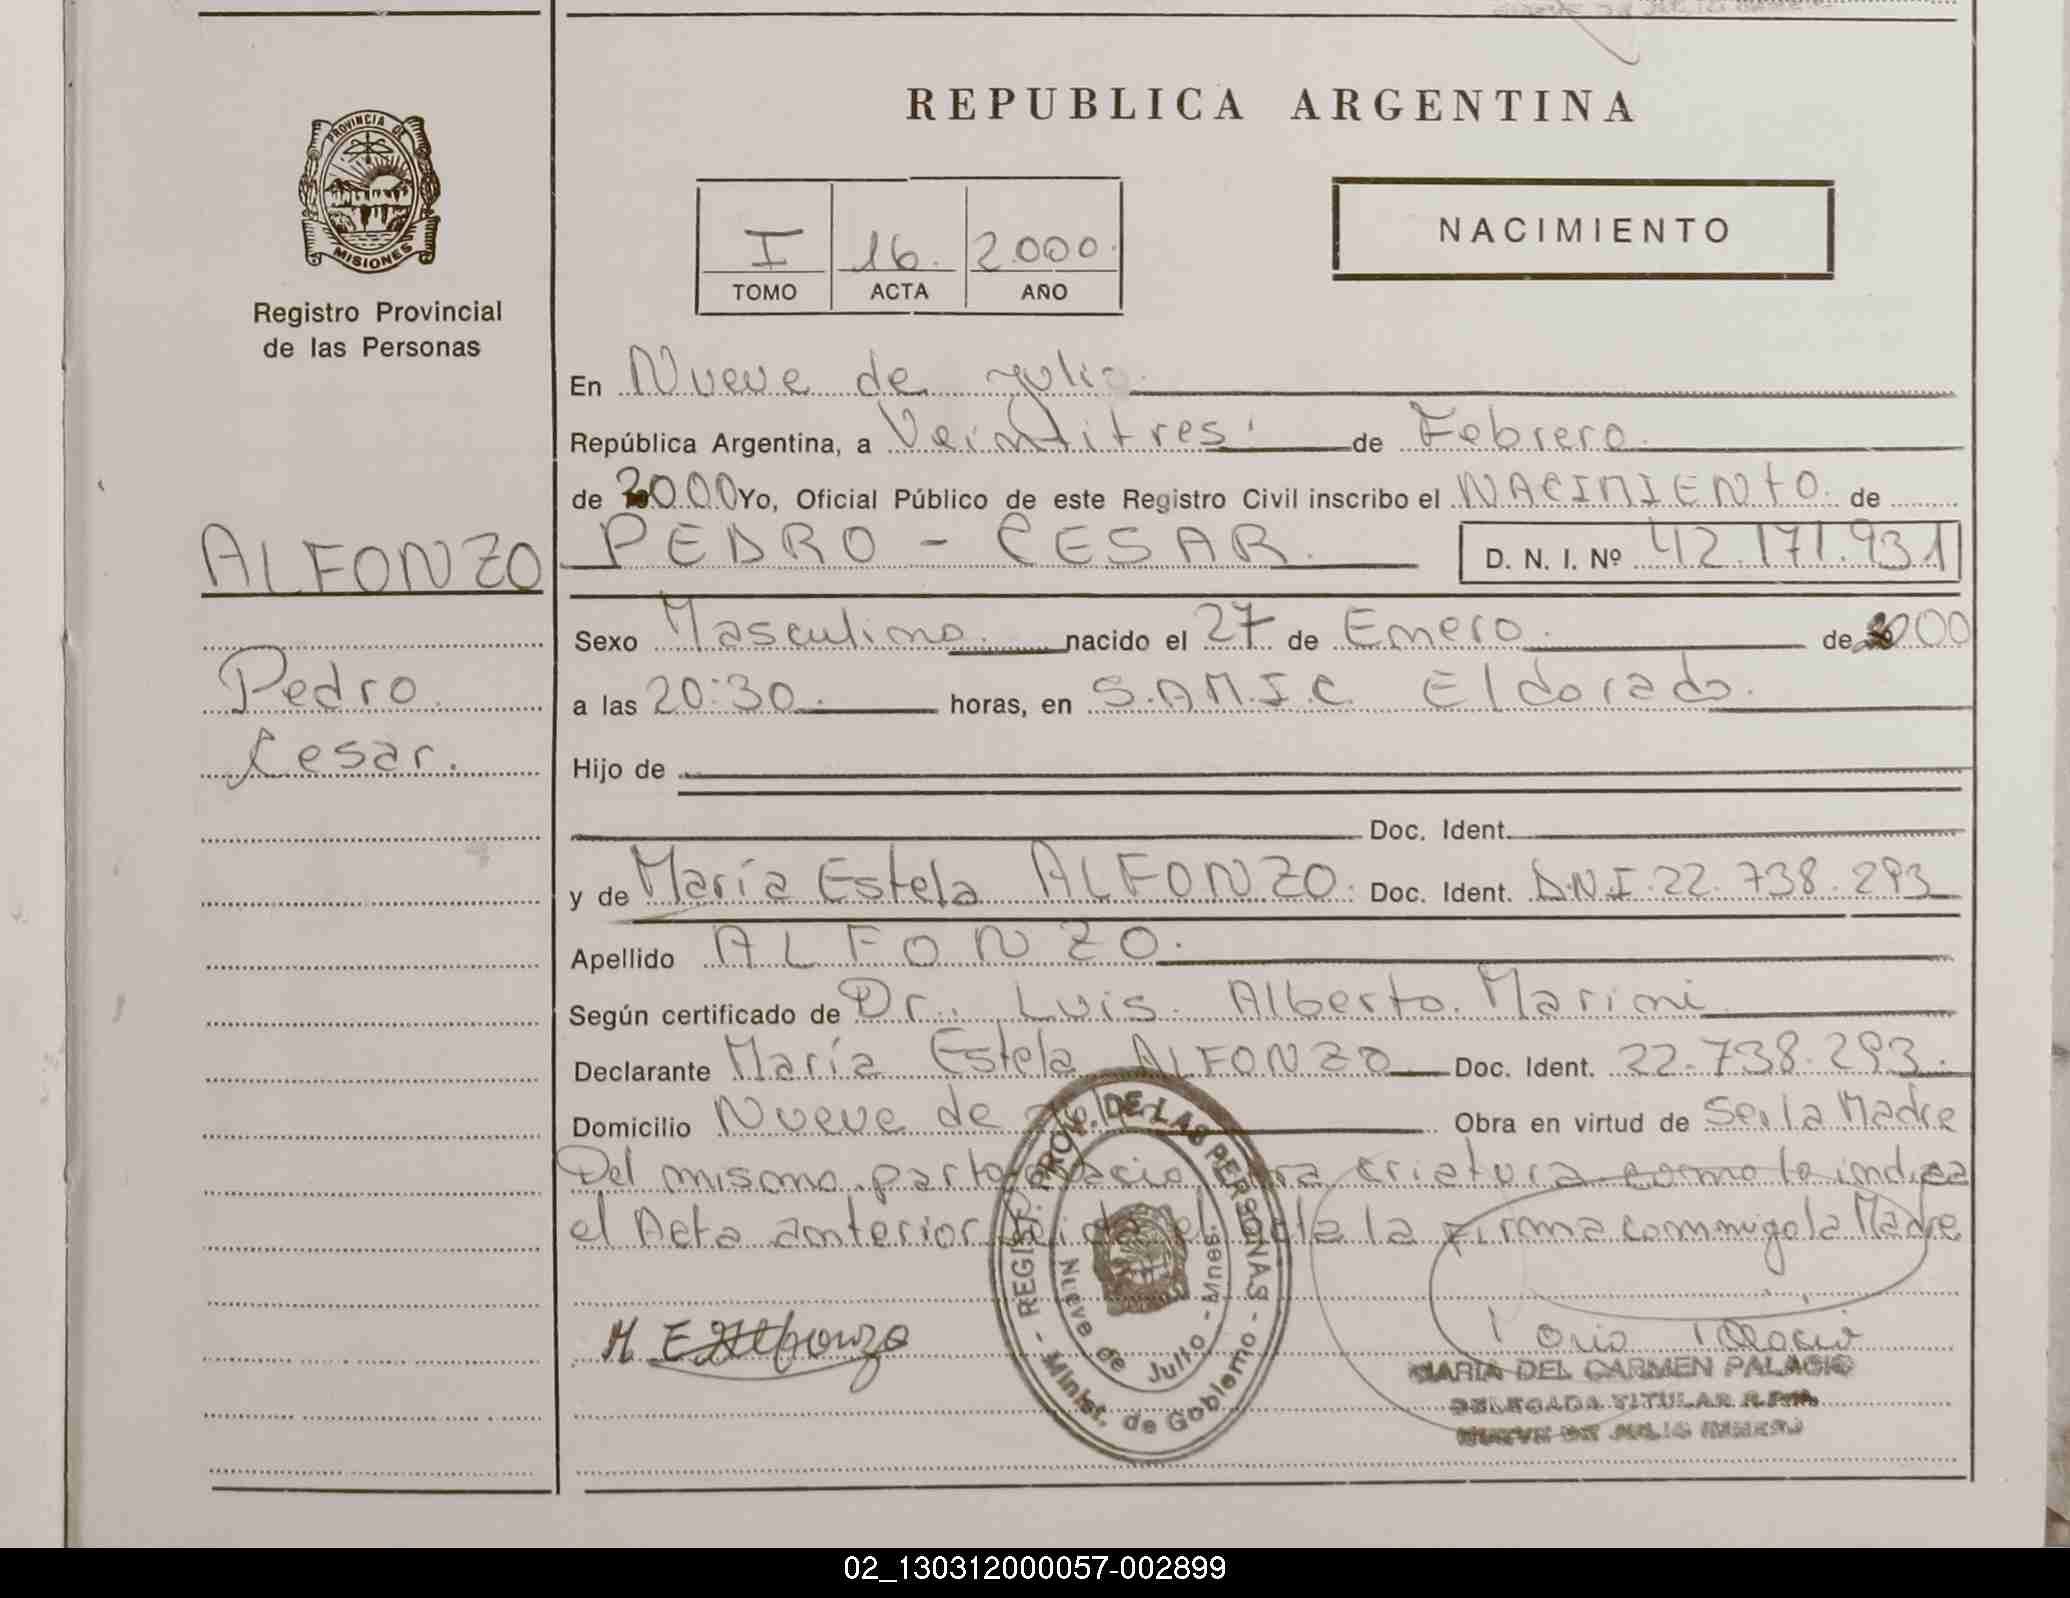 REPUBLICA ARGENTINA
PROVINCIA DE
MISIONES
Registro Provincial
de las Personas
I 16. 2.000.
TOMO ACTA AÑO
NACIMIENTO
En Nueve de Julio.
República Argentina, a Veintitres. de Febrero.
de 2000 Yo, Oficial Público de este Registro Civil inscribo el NACIMIENTO. de
ALFONZO PEDRO - CESAR. D. N. I. Nº 42.171.931
Sexo Masculino. nacido el 27 de Enero. de 2000
Pedro
a las 20:30. horas, en S.A.M.I.C. Eldorado.
Cesar.
Hijo de
Doc. Ident.
y de María Estela ALFONZO. Doc. Ident. D.N.I. 22.738.293
Apellido ALFONZO.
Según certificado de Dr. Luis. Alberto. Marini
Declarante María Estela ALFONZO Doc. Ident. 22.738.293.
Domicilio Nueve de Obra en virtud de Ser la Madre
Del mismo parto nacio otra criatura como lo indica
el Acta anterior leida el acta la firma conmigo la Madre
M E Alfonzo
REGIST. PROV. DE LAS PERSONAS - Minist. de Gobierno -
Nueve de Julio - Mnes.
MARIA DEL CARMEN PALACIO
DELEGADA TITULAR R.P.P.
NUEVE DE JULIO
02_130312000057-002899